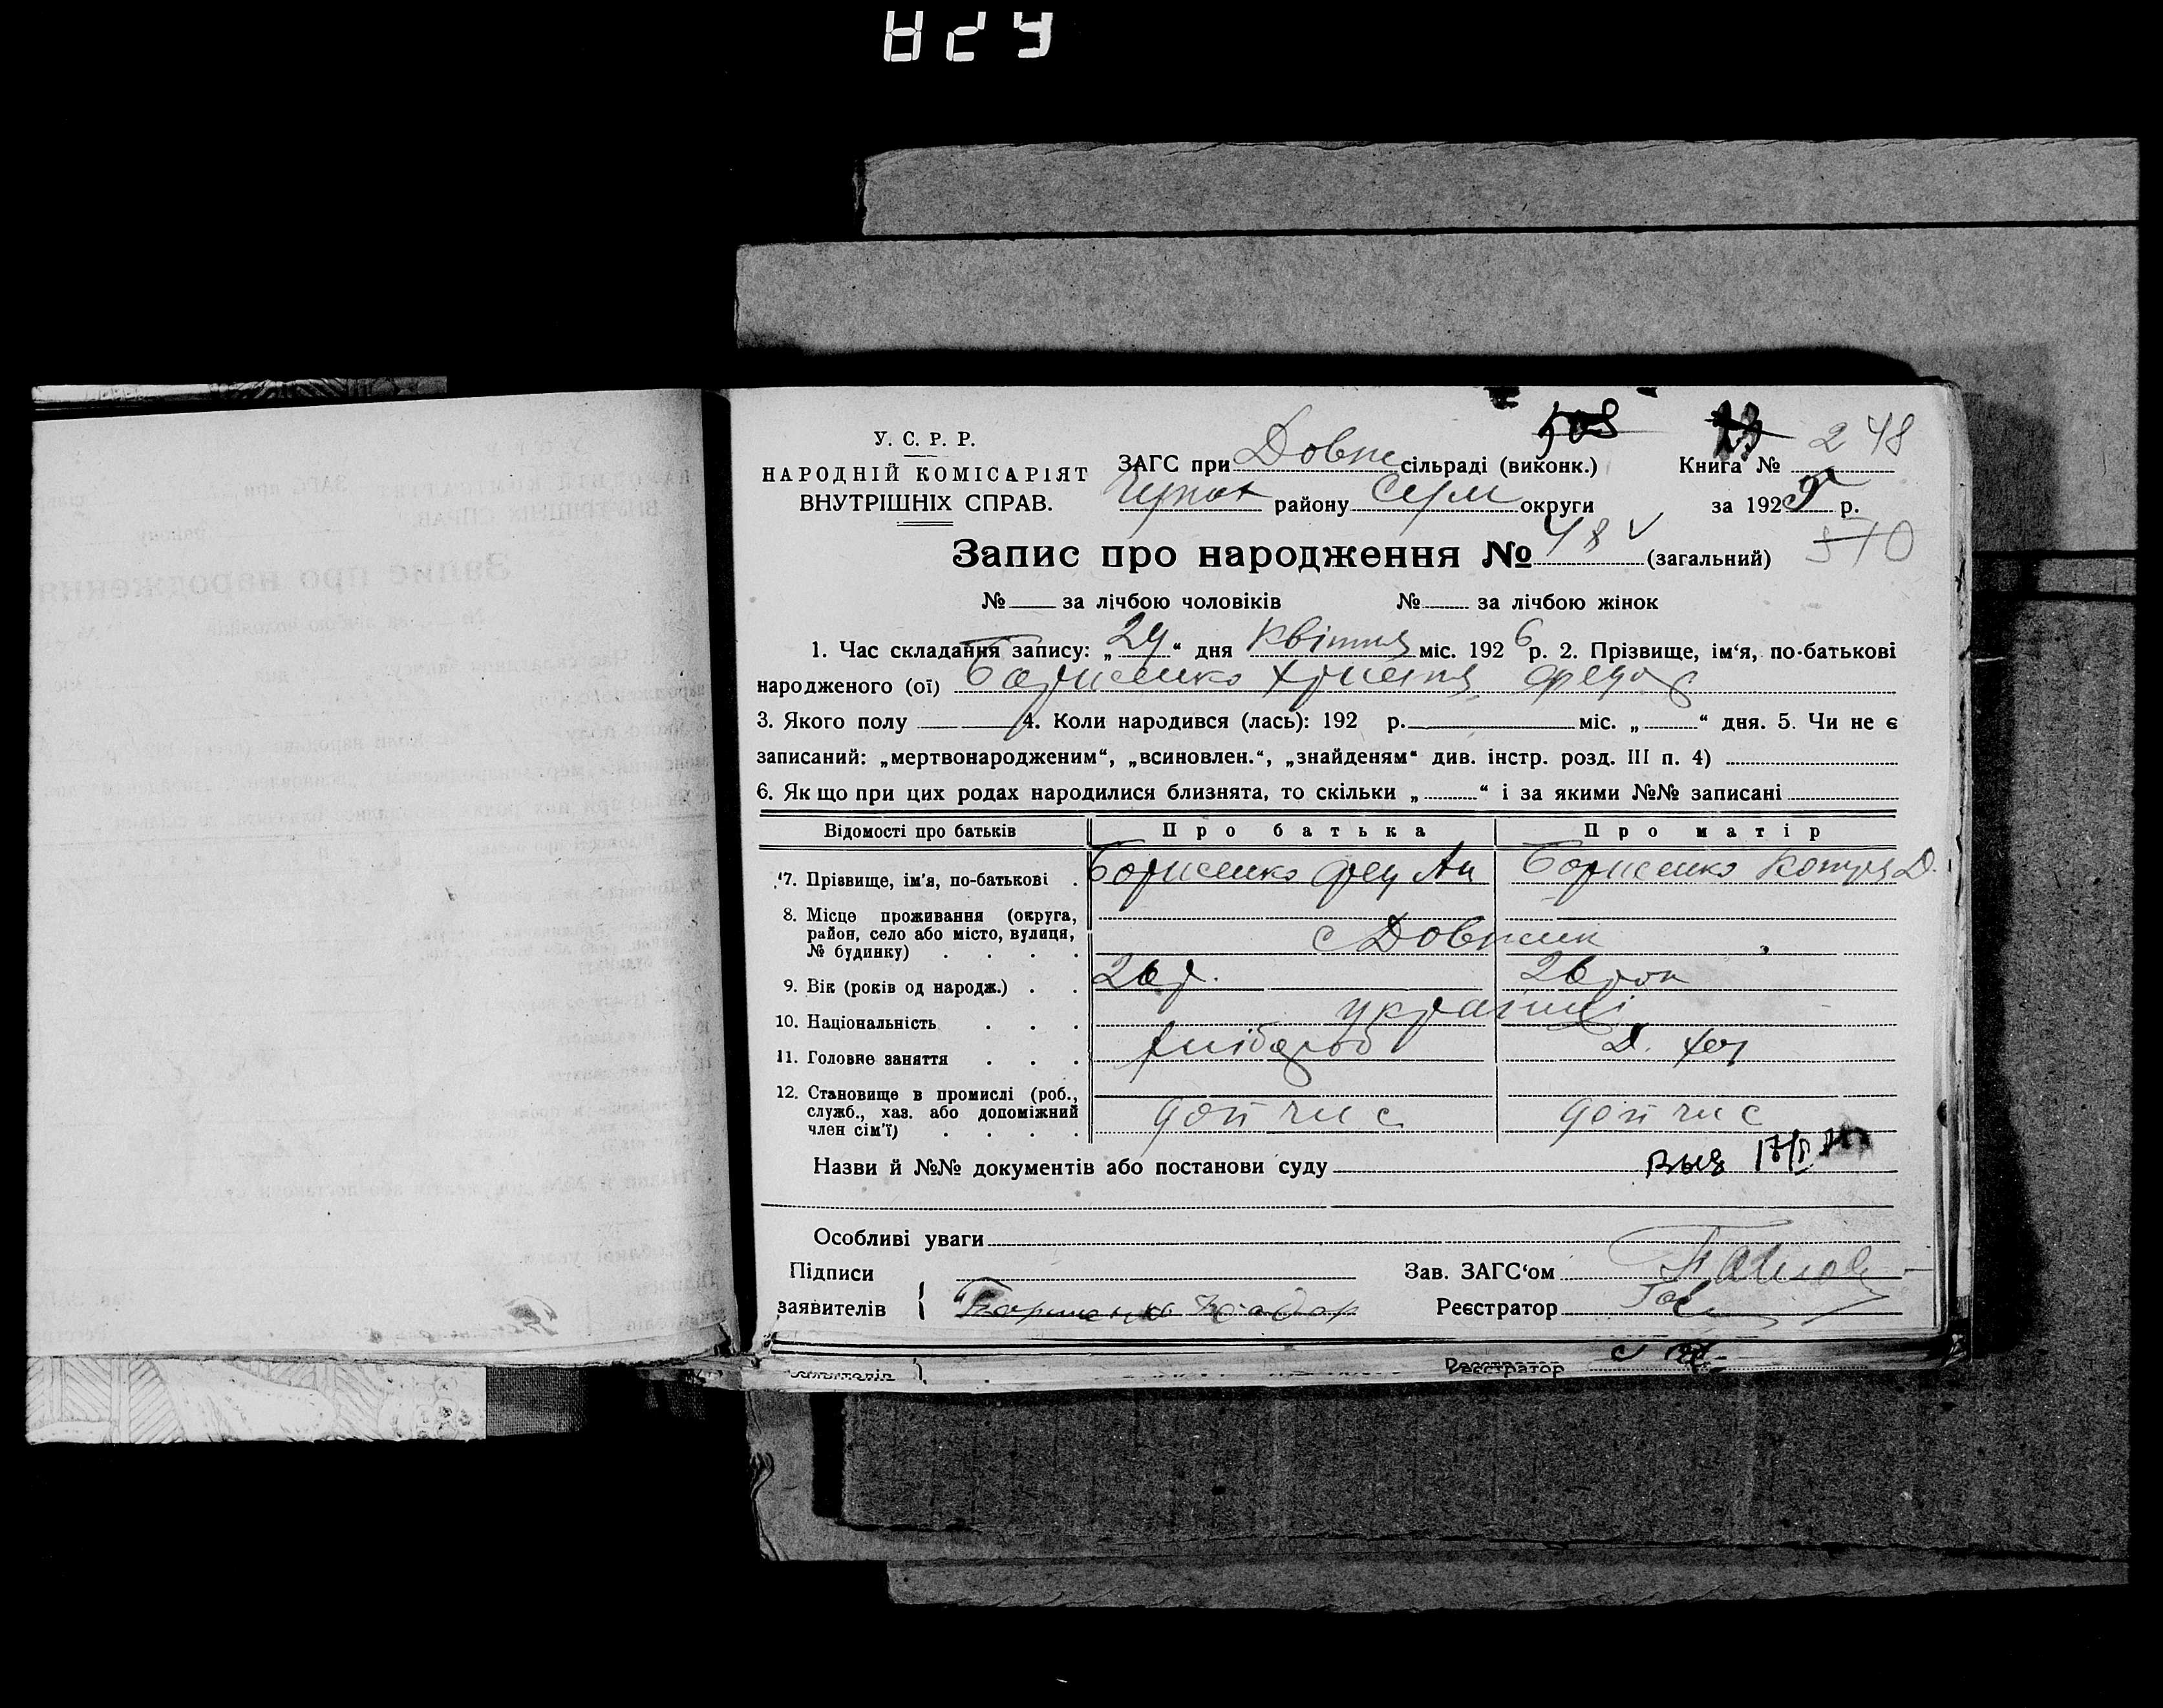 У. С. Р. Р.
НАРОДНІЙ КОМІСАРІЯТ
ВНУТРІШНІХ СПРАВ.
ЗАГС при Довж сільраді (виконк.)
району Сум округи
508
Книга № 248
за 192 р.
Запис про народження № 48 (загальний) 570
№ за лічбою чоловіків № за лічбою жінок
1. Час складання запису: „ “ дня Квітня міс. 1926 р. 2. Прізвище, ім‘я, по-батькові
народженого (ої) Борисенко Христя Федор
3. Якого полу 4. Коли народився (лась): 192 р. міс. „ “ дня. 5. Чи не є
записаний: „мертвонародженим“, „всиновлен.“, „знайденям“ див. інстр. розд. III п. 4)
6. Як що при цих родах народилися близнята, то скільки „ “ і за якими №№ записані
Відомості про батьків Про батька Про матір
7. Прізвище, ім‘я, по-батькові . Борисенко Фед Ан Борисенко Катря Д.
8. Місце проживання (округа,
район, село або місто, вулиця,
№ будинку) . . . . с Довжик
9. Вік (років од народж.) . . 26 р. 26 рок
10. Національність . . . українці
11. Головне заняття . . . Хлібороб Д. Хоз
12. Становище в промислі (роб.,
служб., хаз. або допоміжний
член сім‘ї) . . . . доп чл с доп чл с
Назви й №№ документів або постанови суду
Особливі уваги
Підписи
заявителів { Борисенко
Зав. ЗАГС‘ом
Реєстратор
Реєстратор